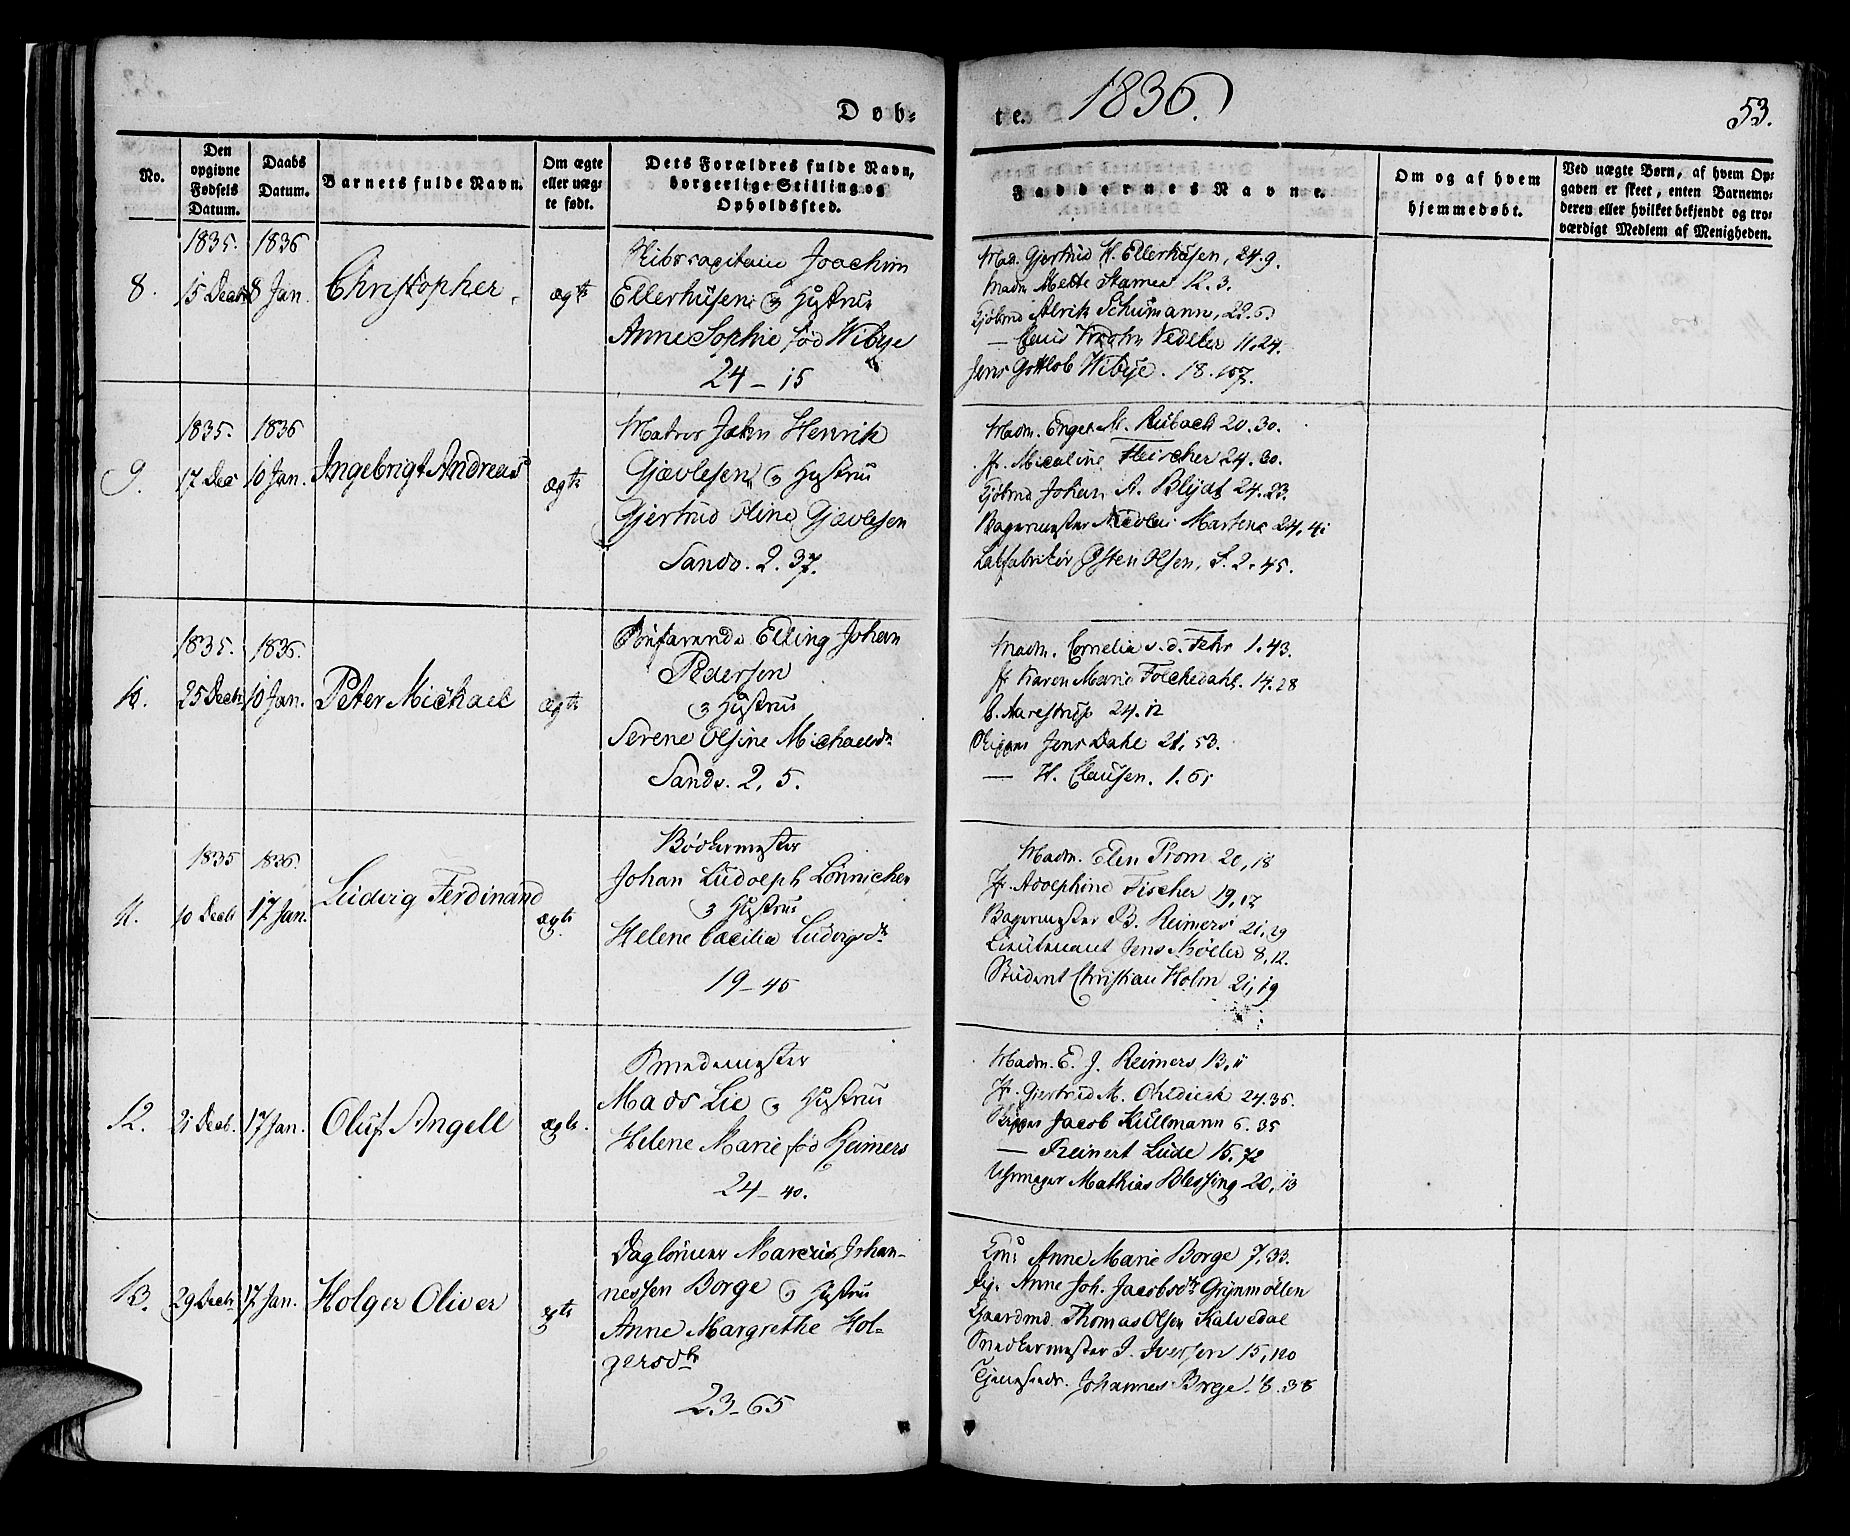 Døb-
te.
1836.
53.
No.
Den opgivne Fødsels Datum.
Daabs Datum.
Barnets fulde Navn.
Om ægte eller uægte født.
Dets Forældres fulde Navn, borgerlige Stilling og Opholdssted.
Faddernes Navne.
Om og af hvem hjemmedøbt.
Ved uægte Børn, af hvem Opgaven er skeet, enten Barnemoderen eller hvilket bekjendt og troværdigt Medlem af Menigheden.
8.
1835. 15 Decb
1836 8 Jan.
Christopher
ægte
Skibscapitain Joachim
Ellerhusen & Hustrue
Anne Sophie fød Wibye
24 - 15
Mad. Gjertrud H. Ellerhusen, 24.9.
Madm Mette Stamer 12.3.
Kjøbmd Alrik Schumann, 22.6
Vedeler 11.24.
Jens Gottlob Wibye. 18.107.
9.
1835. 17 Dec
1836 10 Jan.
Ingebrigt Andreas
ægte
Matros John Henrik
Gjævlesen & Hustru
Gjertrud Oline Gjævlesen
Sandv. 2. 37.
Madm. Engel M. Rubach 20.30.
Jf. Micaline Fleischer 24.30.
Kjøbmd Johan A. Blydt 24.23
Bagermester Nicolai Martens 24.41
Østen Olsen, S. 2.45.
10.
1835. 25 Decb
1836. 10 Jan.
Peter Michael
ægte
Søefarende Elling Johan
Pedersen
& Hustrue
Serene Olsine Michaelsdr
Sandv. 2. 5.
Madm. Cornelia v. d. Fehr 1.43.
Jf Karen Marie Folckedahl. 14.28
C. Aarestrup 24.12
Skipper Jens Dahl 21.53.
— H. Clausen. 1.61
11.
1835 10 Decb
1836. 17 Jan.
Ludvig Ferdinand
ægte.
Bødkermester
Johan Ludolph Lønnichen
& Hustrue
Helene Cæcilia Ludvigsdr
19 - 45
Madm. Elen Prom 20,18
Jf. Adolphine Fischer 19,17
Bagermester B. Reimers 21,19
Lieutenant Jens Møller 8,12.
Student Christian Holm 21,19
12.
21 Decb.
17 Jan.
Oluf Angell
ægte.
Smedemester
Mads Lie & Hustrue
Helene Marie fød Reimers
24 - 40.
Madm. E. J. Reimers 13,11
Jf. Gjertrud M. Ohldieck 24.35.
Skipper Jacob Kullmann 6.35
— Freinert Lude 15.72
Uhrmager Mathias Blessing 20,13
13.
29 Decb
17 Jan.
Holger Oliver
ægte
Dagløinner Marcus Johan-
nessen Borge & Hustrue
Anne Margrethe Hol-
gersdtr
23 - 65
Anne Marie Borge 7.33.
Pig. Anne Joh. Jacobsdtr Grynmøllen
Gaardmd. Thomas Olsen Kalvedal
Snedkermester J. Iversen 15,120
Tjenestedr. Johannes Borge. 8.38